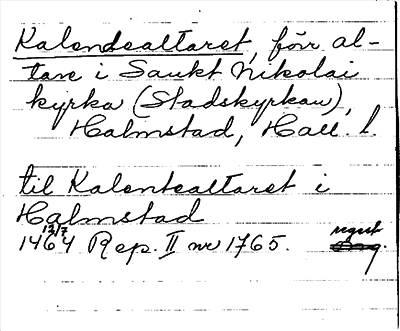 Kalendealtaret, förr al-
tare i Sankt Nikolai
kyrka (Stadskyrkan),
Halmstad, Hall. l.
til Kalentealtaret i
Halmstad
12/7
1464 Rep. II nr 1765. regest